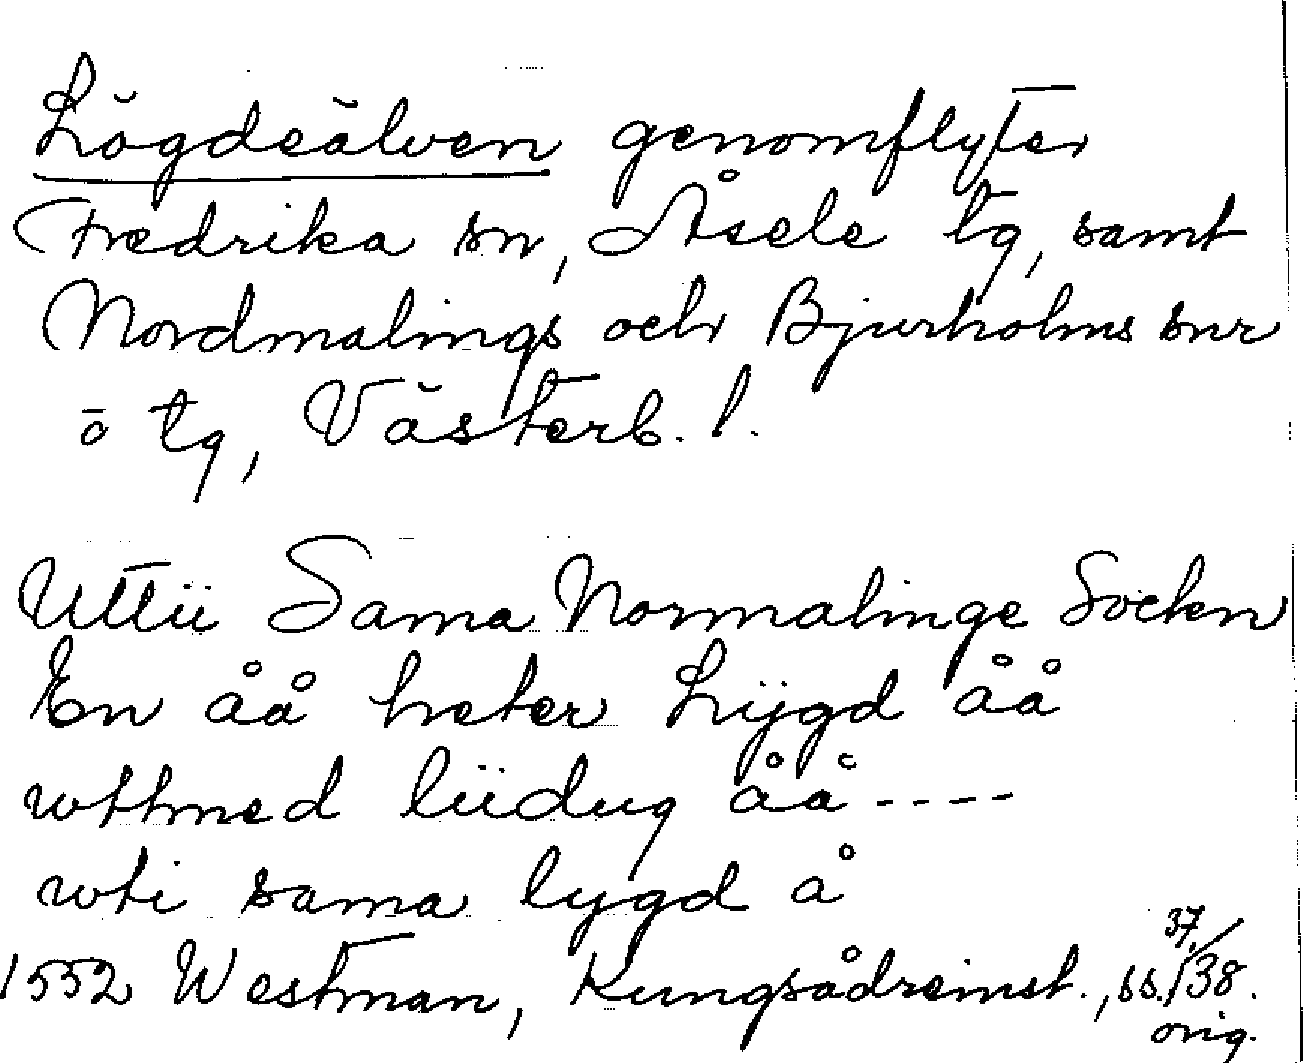 Lögdeälven genomflyter
Fredrika sn, Åsele tg, samt
Nordmalings och Bjurholms snr
o tg, Västerb. l.
Uttii Sama Normalinge Sockn
En åå heter Lijgd åå
wttmed liidug åå ----
wti sama lygd å
1552 Westman, Kungsådreinst., ss. 37/38.
orig.